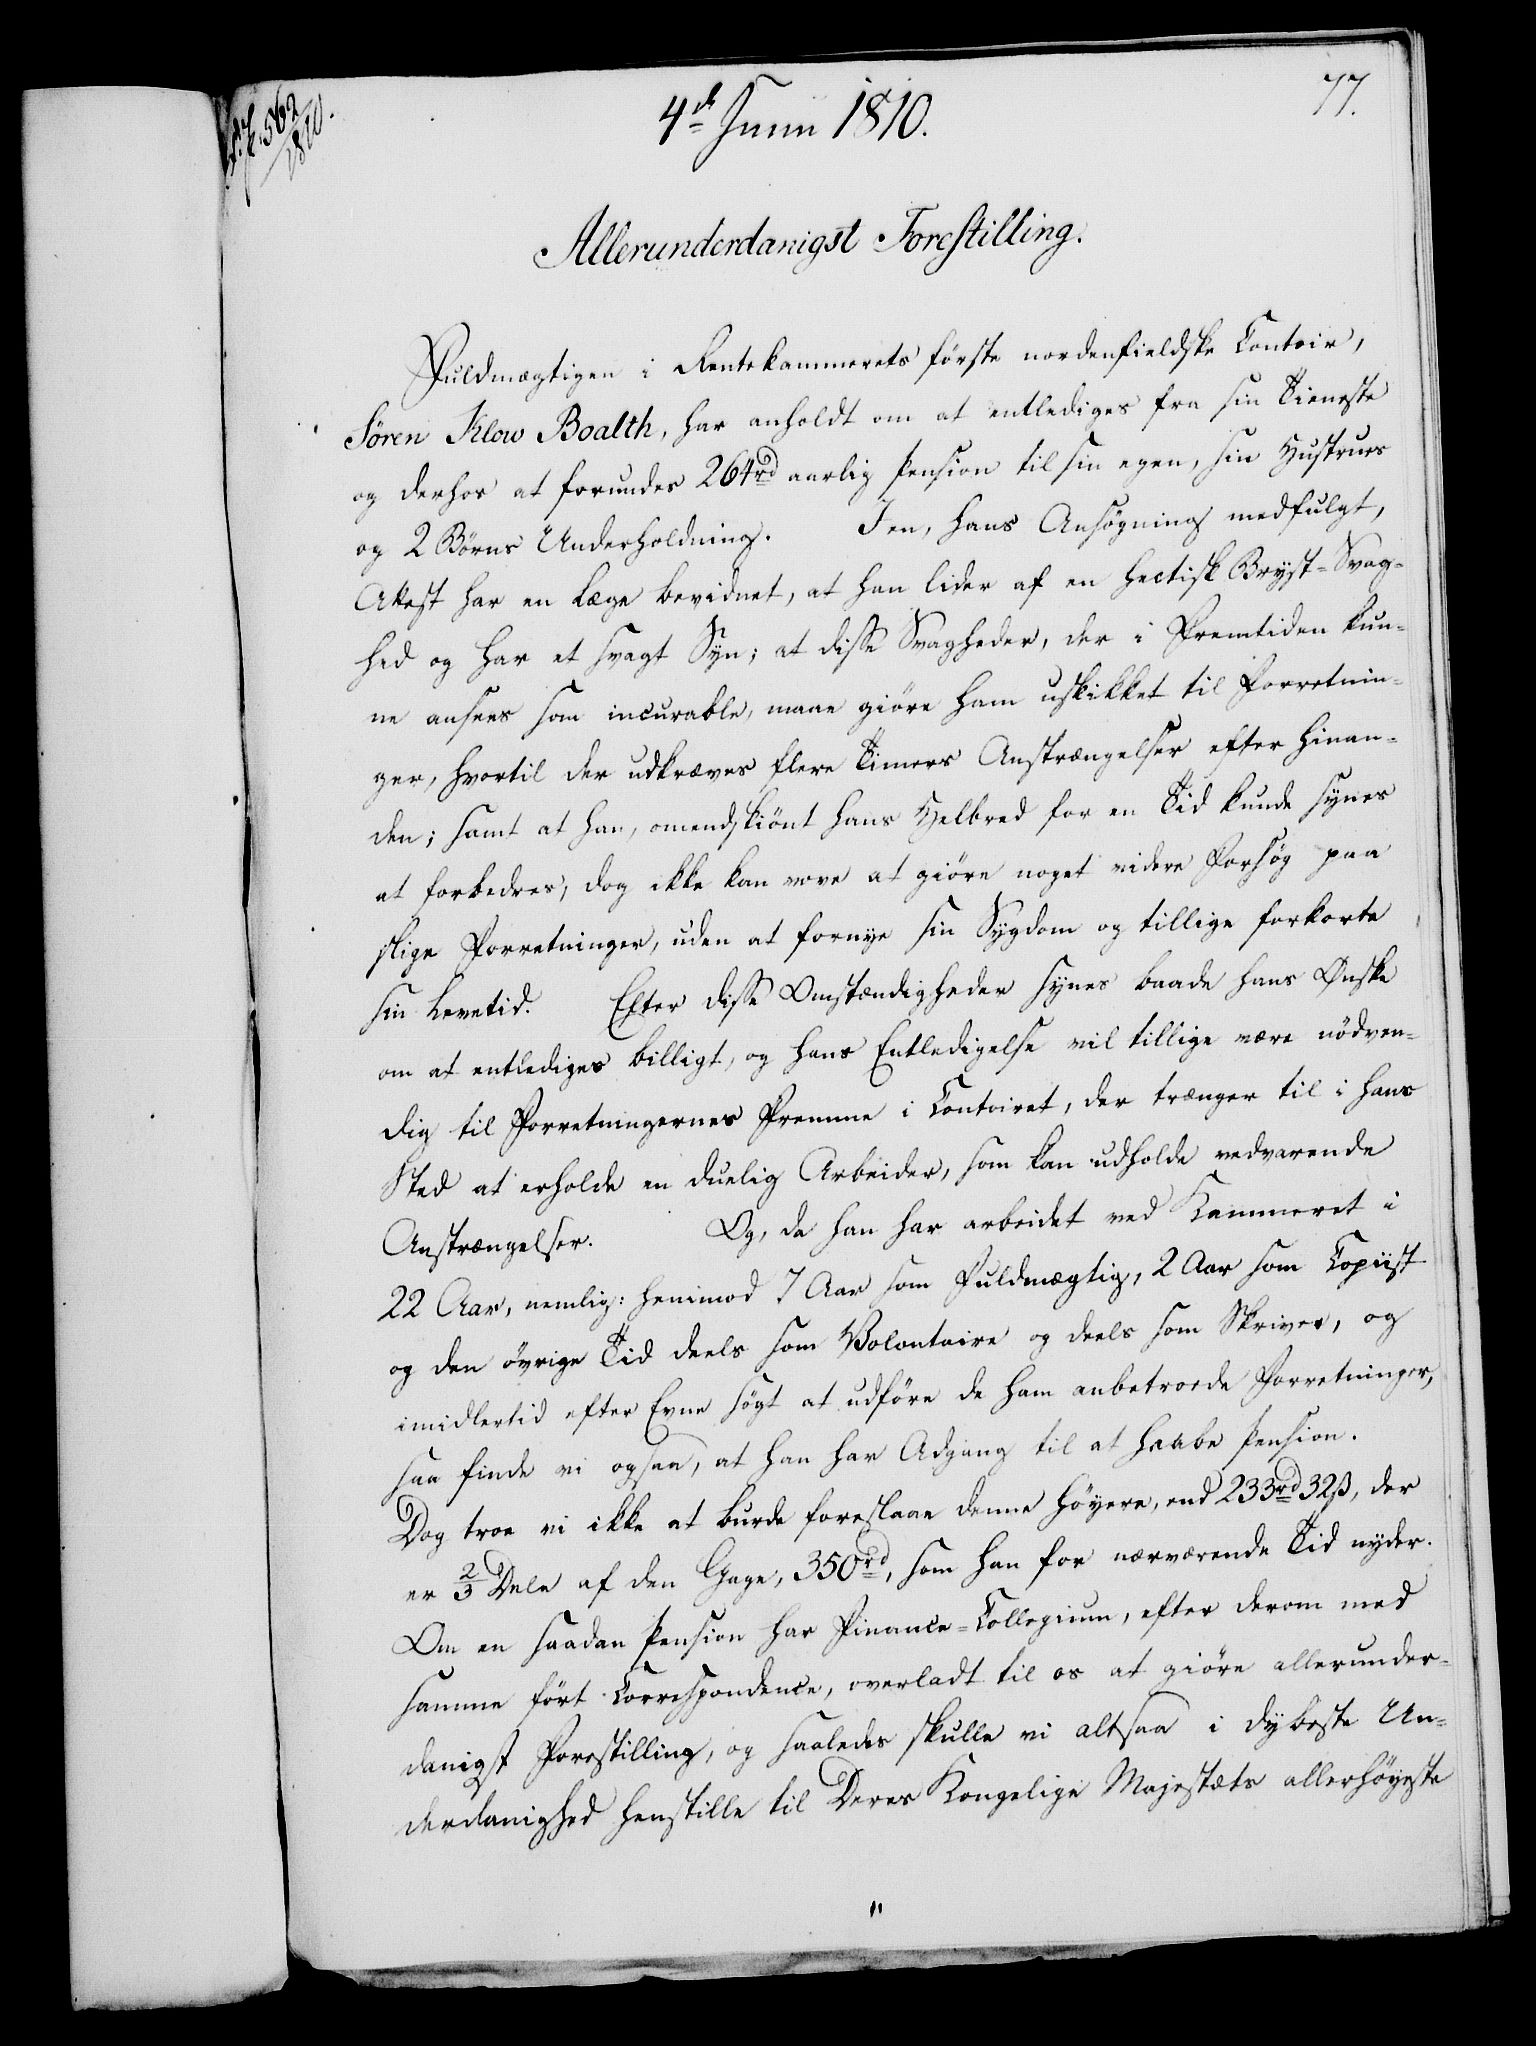 77.
562
1810.
4de Junii 1810.
Allerunderdanigst Forestilling.
Fuldmægtigen i Rentekammerets første nordenfieldske Contoir,
Sören Klow Boalth, har anholdt om at entlediges fra sin Tieneste
og derhos at forundes 264rd aarlig Pension til sin egen, sin Hustrues
og 2 Börns Underholdning. I en, hans Ansøgning medfulgt,
Attest har en Læge bevidnet, at han lider af en hectisk Bryst-Svag-
hed og har et svagt Syn; at disse Svagheder, der i Fremtiden kun-
ne ansees som incurable, maae giöre ham uskikket til Forretnin-
ger, hvortil der udkræves flere Timers Anstrængelser efter hinan-
den; samt at han, omendskiönt hans Helbred for en Tid kunde synes
at forbedres, dog ikke kan vove at giöre noget videre Forsög paa
slige Forretninger, uden at fornye sin Sygdom og tillige forkorte
sin Levetid. Efter disse Omstændigheder synes baade hans Ønske
om at entlediges billigt, og hans Entledigelse vil tillige være nödven-
dig til Forretningernes Fremme i Contoiret, der trænger til i hans
Sted at erholde en duelig Arbeider, som kan udholde vedvarende
Anstrængelser. Og, da han har arbeidet ved Kammeret i
22 Aar, nemlig: henimod 7 Aar som Fuldmægtig, 2 Aar som Copiist
og den övrige Tid deels som Volontaire og deels som Skriver, og
imidlertid efter Evne sögt at udföre de ham anbetroede Forretninger,
saa finde vi ogsaa, at han har Adgang til at haabe Pension.
Dog troe vi ikke at burde foreslaae denne höyere, end 233rd 32ß, der
er 2/3 Dele af den Gage, 350rd, som han for nærværende Tid nyder.
Om en saadan Pension har Finance-Collegium, efter derom med
samme fört Correspondence, overladt til os at giöre allerunder-
danigst Forestilling, og saaledes skulle vi altsaa i dybeste Un-
derdanighed henstille til Deres Kongelige Majestæts allerhöyeste